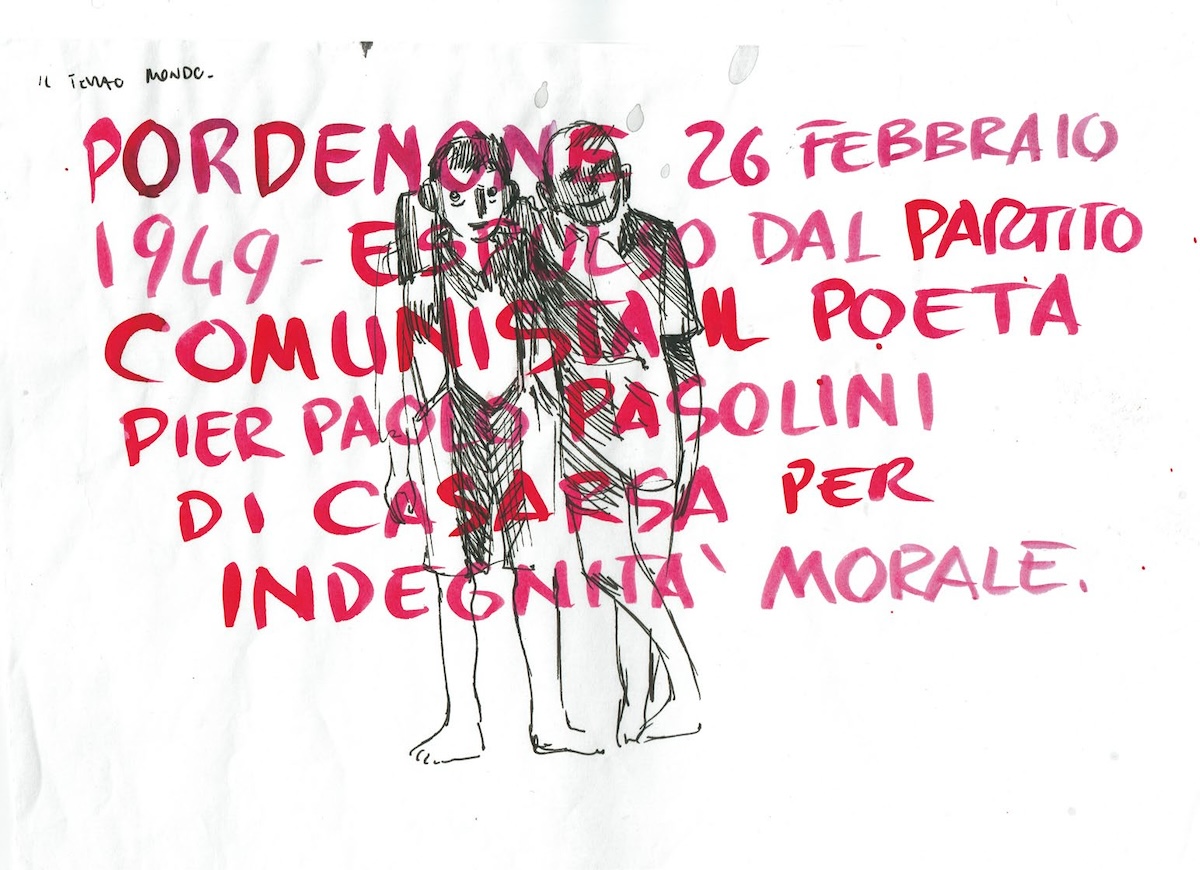 IL TERZO MONDO.
PORDENONE 26 FEBBRAIO
1949 - ESPULSO DAL PARTITO
COMUNISTA IL POETA
PIER PAOLO PASOLINI
DI CASARSA PER
INDEGNITA' MORALE.